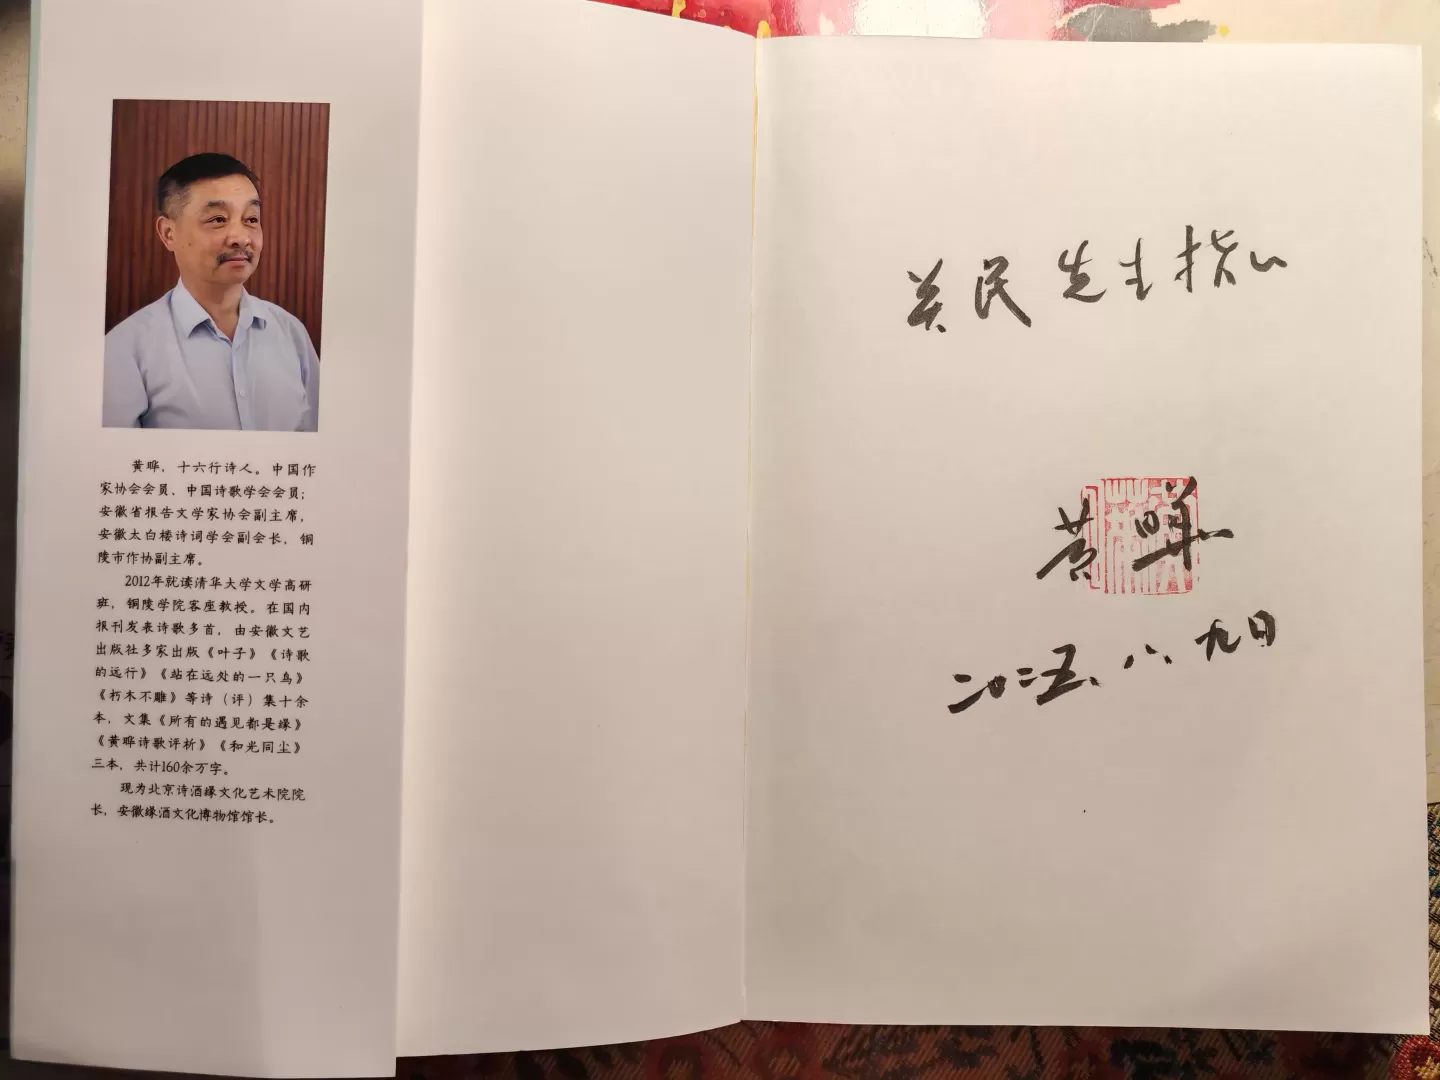 黄晔，十六行诗人。中国作
家协会会员、中国诗歌学会会员；
安徽省报告文学家协会副主席，
安徽太白楼诗词学会副会长，铜
陵市作协副主席。
2012年就读清华大学文学高研
班，铜陵学院客座教授。在国内
报刊发表诗歌多首，由安徽文艺
出版社多家出版《叶子》《诗歌
的远行》《站在远处的一只鸟》
《朽木不雕》等诗（评）集十余
本，文集《所有的遇见都是缘》
《黄晔诗歌评析》《和光同尘》
三本，共计160余万字。
现为北京诗酒缘文化艺术院院
长，安徽缘酒文化博物馆馆长。
民先生指
黄晔
二〇二五、八、九日